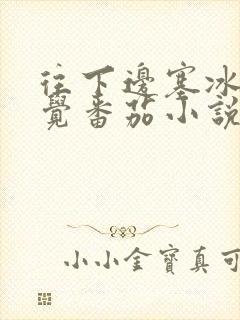 往下邊塞冰
覺番茄小說
小小金寶真可